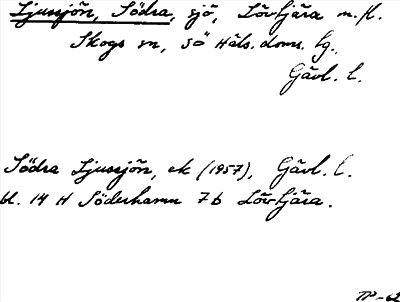 Ljussjön, Södra, sjö, Lövtjära m.fl.
Skogs sn, Sö Häls. doms. tg.,
Gävl. l.
Södra Ljussjön, ek (1957), Gävl. l.
bl. 14 H Söderhamn 7b Lövtjära.
TP-62